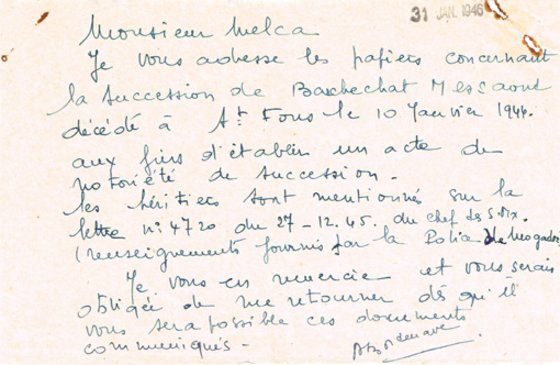 31 JAN. 1946
Monsieur Melca
Je vous adresse les papiers concernant
la succession de Barchechat Messaoud
décédé à St Fons le 10 Janvier 1944.
aux fins d'établir un acte de
notoriété de succession.
les héritiers sont mentionnés sur la
lettre n° 4720 du 27-12.45. du chef des S.
(renseignements fournis par la Police de Mogador
Je vous en remercie et vous serais
obligée de me retourner dès qu'il
vous sera possible ces documents
communiqués -